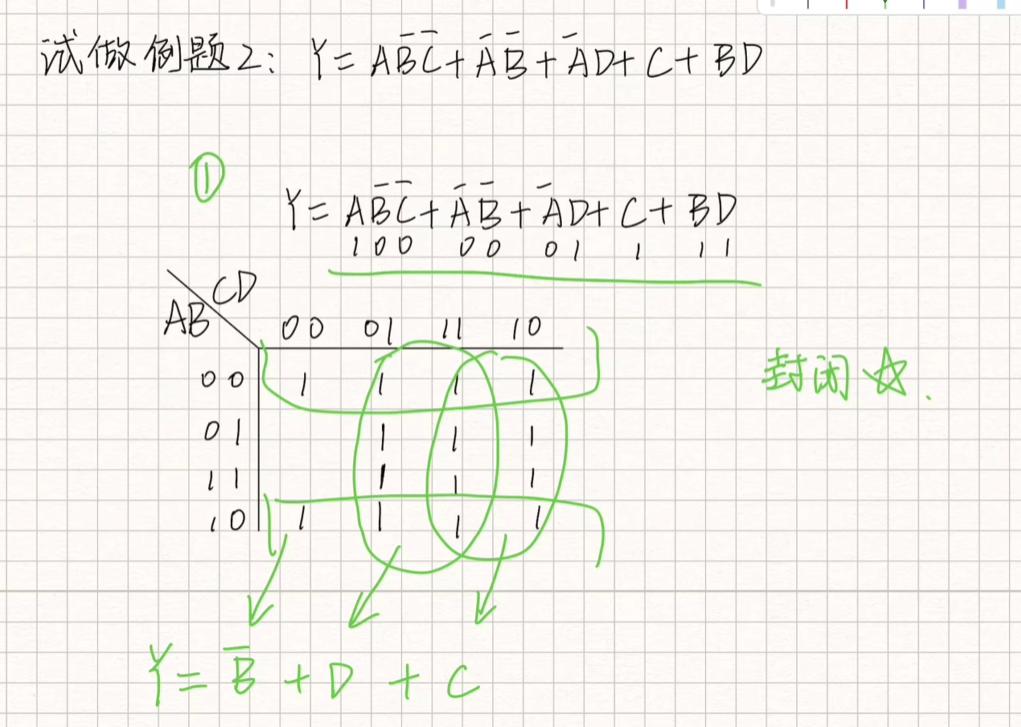 试做例题2: Y= AB̅C̅+A̅B̅+A̅D+C+BD
①
Y= AB̅C̅+A̅B̅+A̅D+C+BD
100 00 01 1 11
CD
AB
00 01 11 10
00 1 1 1 1
封闭☆.
01 1 1 1
11 1 1 1
10 1 1 1 1
Y= B̅ + D + C